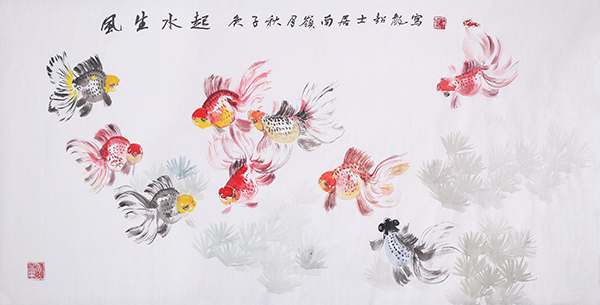 風生水起 庚子秋月嶺南居士智龍寫